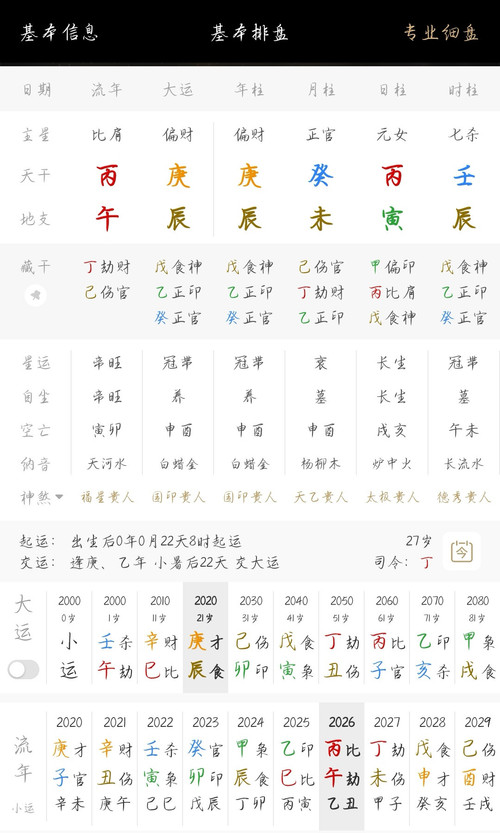 基本信息 基本排盘 专业细盘
日期 流年 大运 年柱 月柱 日柱 时柱
主星 比肩 偏财 偏财 正官 元女 七杀
天干 丙 庚 庚 癸 丙 壬
地支 午 辰 辰 未 寅 辰
藏干 丁劫财 戊食神 戊食神 己伤官 甲偏印 戊食神
己伤官 乙正印 乙正印 丁劫财 丙比肩 乙正印
癸正官 癸正官 乙正印 戊食神 癸正官
星运 帝旺 冠带 冠带 衰 长生 冠带
自坐 帝旺 养 养 墓 长生 墓
空亡 寅卯 申酉 申酉 申酉 戌亥 午未
纳音 天河水 白蜡金 白蜡金 杨柳木 炉中火 长流水
神煞 福星贵人 国印贵人 国印贵人 天乙贵人 太极贵人 德秀贵人
起运: 出生后0年0月22天8时起运 27岁
交运: 逢庚、乙年 小暑后22天 交大运 司令: 丁
今
大运 2000 2000 2010 2020 2030 2040 2050 2060 2070 2080
0岁 1岁 11岁 21岁 31岁 41岁 51岁 61岁 71岁 81岁
小 壬杀 辛财 庚才 己伤 戊食 丁劫 丙比 乙印 甲枭
运 午劫 巳比 辰食 卯印 寅枭 丑伤 子官 亥杀 戌食
流年 2020 2021 2022 2023 2024 2025 2026 2027 2028 2029
庚才 辛财 壬杀 癸官 甲枭 乙印 丙比 丁劫 戊食 己伤
子官 丑伤 寅枭 卯印 辰食 巳比 午劫 未伤 申才 酉财
小运 辛未 庚午 己巳 戊辰 丁卯 丙寅 乙丑 甲子 癸亥 壬戌